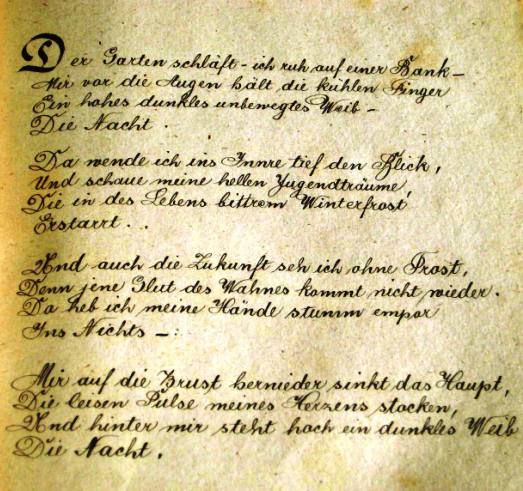 Der Garten schläft - ich ruh auf einer Bank -
Mir vor die Augen hält die kühlen Finger
Ein hohes dunkles unbewegtes Weib -
Die Nacht.
Da wende ich ins Innre tief den Blick,
Und schaue meine hellen Jugendträume,
Die in des Lebens bittrem Winterfrost
Erstarrt...
Und auch die Zukunft seh ich ohne Trost,
Denn jene Glut des Wahnes kommt nicht wieder.
Da heb ich meine Hände stumm empor
Ins Nichts -:
Mir auf die Brust hernieder sinkt das Haupt,
Die leisen Pulse meines Herzens stocken,
Und hinter mir steht hoch ein dunkles Weib
Die Nacht.